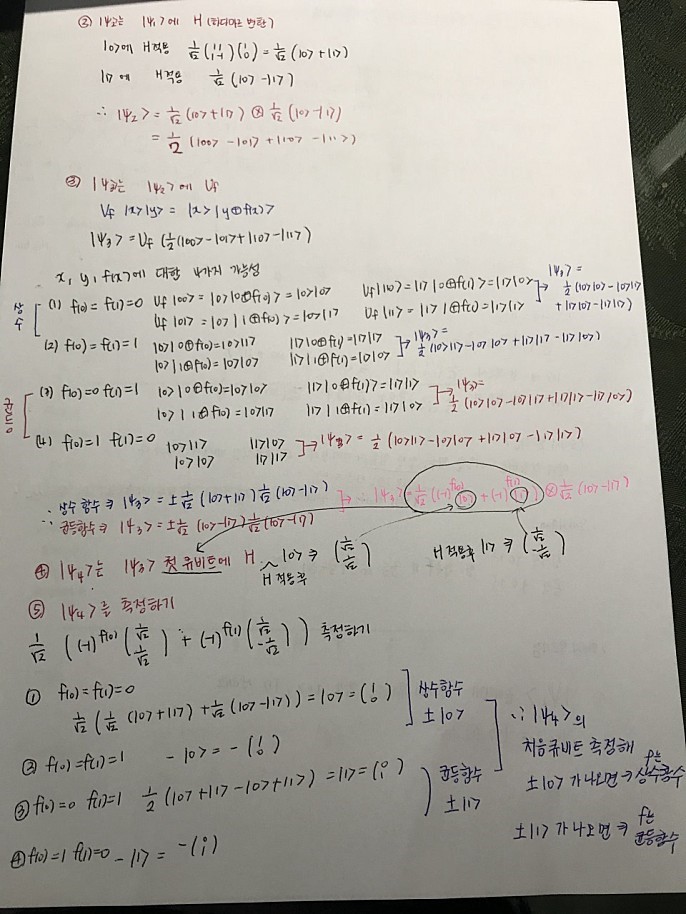 ② |ψ₂>는 |ψ₁>에 H (하다마드 변환)
|0>에 H적용 1/√2 (1 1 / 1 -1) (1 / 0) = 1/√2 (|0> + |1>)
|1>에 H적용 1/√2 (|0> - |1>)
∴ |ψ₂> = 1/√2 (|0> + |1>) ⊗ 1/√2 (|0> - |1>)
= 1/2 (|00> - |01> + |10> - |11>)
③ |ψ₃>는 |ψ₂>에 Uf
Uf |x>|y> = |x>|y⊕f(x)>
|ψ₃> = Uf (1/2 (|00> - |01> + |10> - |11>)
x, y, f(x)에 대한 4가지 가능성
상수
(1) f(0) = f(1) = 0 Uf |00> = |0>|0⊕f(0)> = |0>|0> Uf |10> = |1>|0⊕f(1)> = |1>|0> → |ψ₃> = 1/2 (|0>|0> - |0>|1>
Uf |01> = |0>|1⊕f(0)> = |0>|1> Uf |11> = |1>|1⊕f(1) = |1>|1> + |1>|0> - |1>|1>)
(2) f(0) = f(1) = 1 |0>|0⊕f(0) = |0>|1> |1>|0⊕f(1) = |1>|1> → |ψ₃> =
|0>|1⊕f(0) = |0>|0> |1>|1⊕f(1) = |1>|0> 1/2 (|0>|1> - |0>|0> + |1>|1> - |1>|0>)
균등
(3) f(0) = 0 f(1) = 1 |0>|0⊕f(0) = |0>|0> |1>|0⊕f(1)> = |1>|1> → |ψ₃> =
|0>|1⊕f(0) = |0>|1> |1>|1⊕f(1) = |1>|0> 1/2 (|0>|0> - |0>|1> + |1>|1> - |1>|0>)
(4) f(0) = 1 f(1) = 0 |0>|1> |1>|0> → |ψ₃> = 1/2 (|0>|1> - |0>|0> + |1>|0> - |1>|1>)
|0>|0> |1>|1>
∴ 상수 함수 ⇒ |ψ₃> = ± 1/√2 (|0> + |1>) 1/√2 (|0> - |1>) → ∴ |ψ₃> = 1/√2 ((-1)^f(0) |0> + (-1)^f(1) |1>) ⊗ 1/√2 (|0> - |1>)
∴ 균등함수 ⇒ |ψ₃> = ± 1/√2 (|0> - |1>) 1/√2 (|0> - |1>)
④ |ψ₄>는 |ψ₃> 첫 큐비트에 H H적용후 |0> ⇒ (1/√2 / 1/√2) H적용후 |1> ⇒ (1/√2 / -1/√2)
⑤ |ψ₄>를 측정하기
1/√2 ((-1)^f(0) (1/√2 / 1/√2) + (-1)^f(1) (1/√2 / -1/√2)) 측정하기
① f(0) = f(1) = 0
1/√2 (1/√2 (|0> + |1>) + 1/√2 (|0> - |1>)) = |0> = (1 / 0) 상수함수 ± |0>
② f(0) = f(1) = 1 - |0> = - (1 / 0)
③ f(0) = 0 f(1) = 1 1/2 (|0> + |1> - |0> + |1>) = |1> = (0 / 1) 균등함수 ± |1>
④ f(0) = 1 f(1) = 0 - |1> = - (0 / 1)
∴ |ψ₄>의
처음큐비트 측정해
± |0>가 나오면 ⇒ f는 상수함수
± |1>가 나오면 ⇒ f는 균등함수